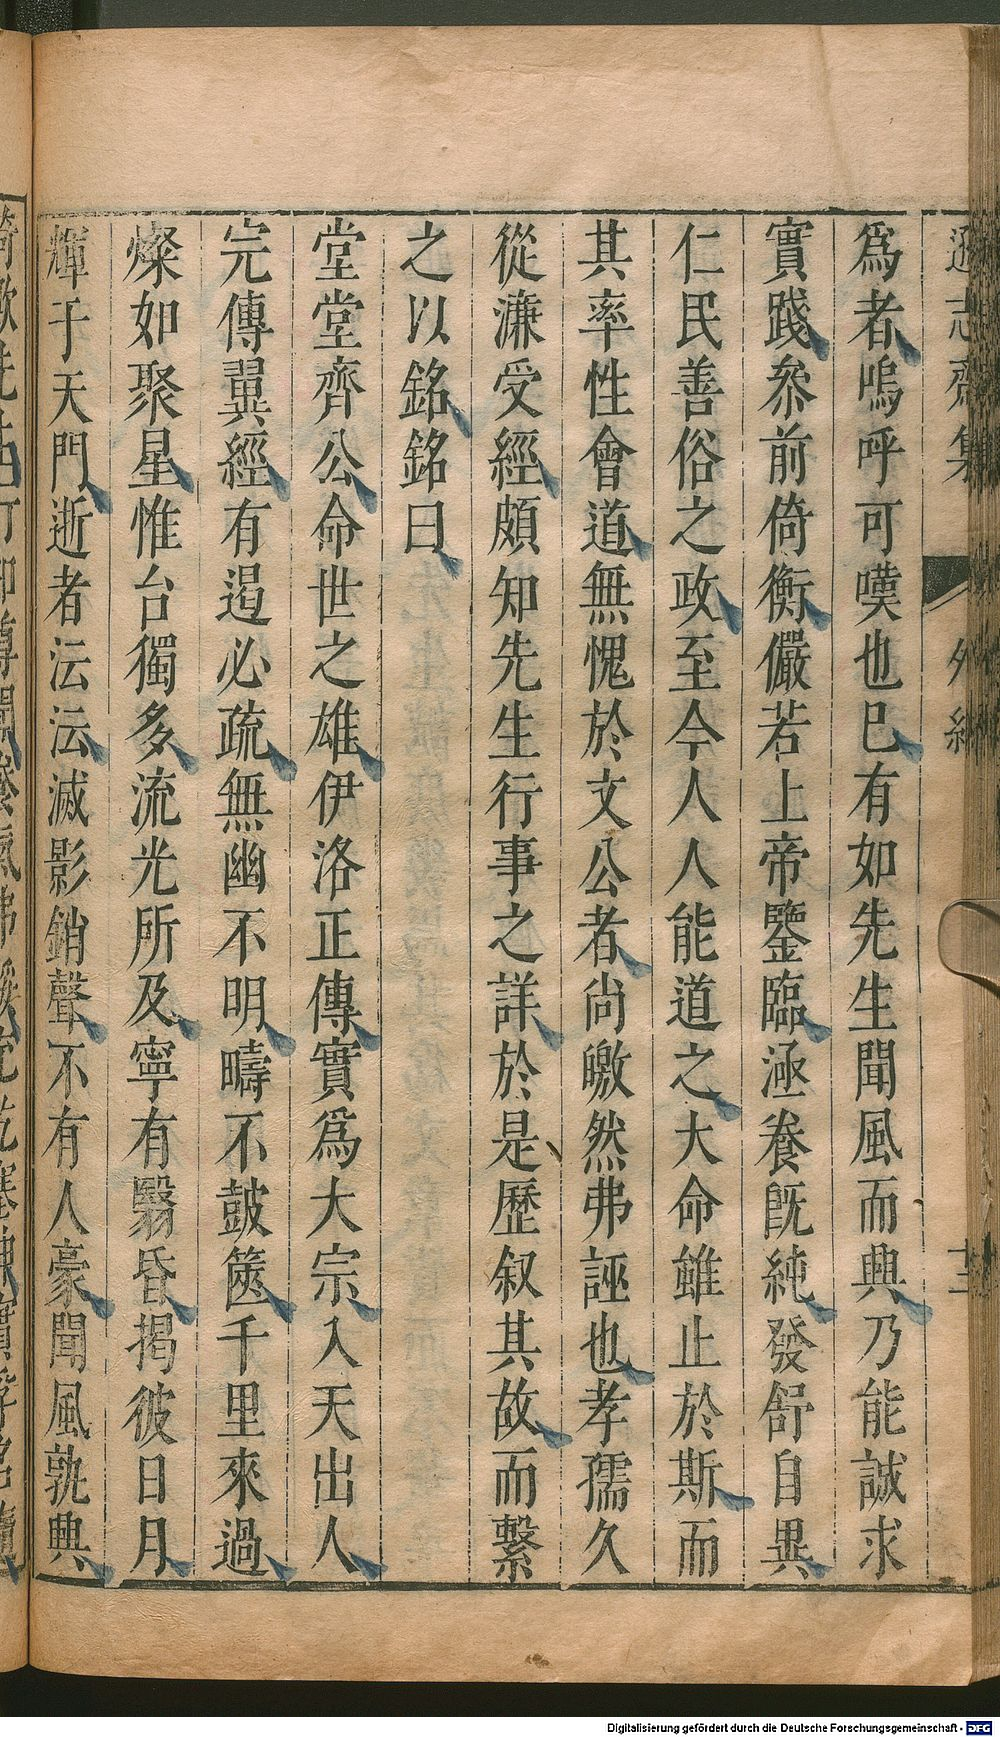 遜志齋集
外紀
為者嗚呼可嘆也已有如先生聞風而興乃能誠求
實踐叅前倚衡儼若上帝鑒臨涵養既純發舒自異
仁民善俗之政至今人人能道之大命雖止於斯而
其率性會道無愧於文公者尚皦然弗誣也孝孺久
從濂受經頗知先生行事之詳於是歷叙其故而繫
之以銘銘曰
堂堂齊公命世之雄伊洛正傳實為大宗入天出人
完傳翼經有遏必疏無幽不明疇不鼓篋千里來過
燦如聚星惟台獨多流光所及寧有翳昏揭彼日月
輝于天門逝者沄沄滅影銷聲不有人豪聞風孰興
Digitalisierung gefördert durch die Deutsche Forschungsgemeinschaft - DFG